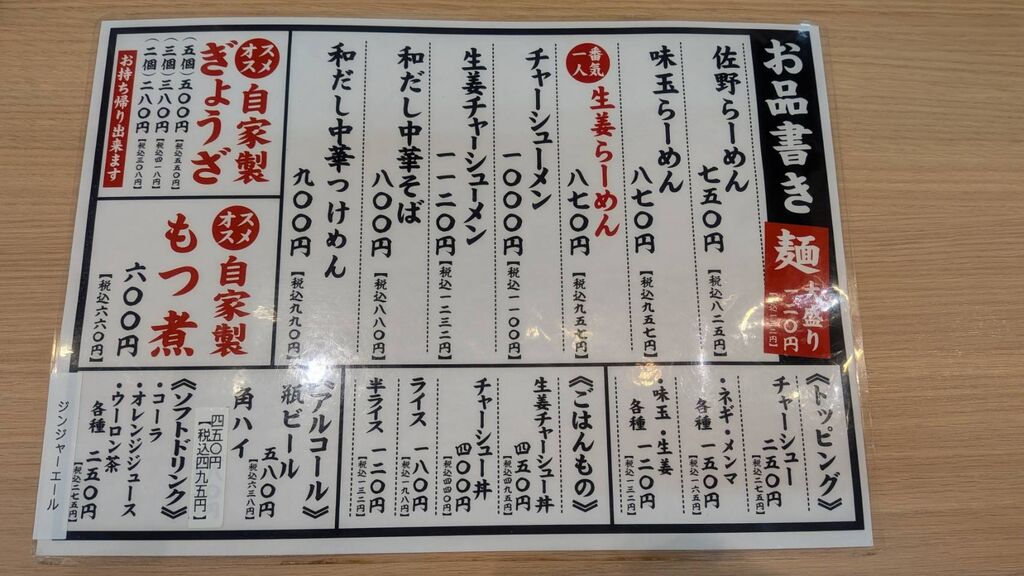 お品書き
麺
大盛り
一二〇円
佐野らーめん 七五〇円【税込八二五円】
味玉らーめん 八七〇円【税込九五七円】
一番人気
生姜らーめん 八七〇円【税込九五七円】
チャーシューメン 一〇〇〇円【税込一一〇〇円】
生姜チャーシューメン 一一二〇円【税込一二三二円】
和だし中華そば 八〇〇円【税込八八〇円】
和だし中華つけめん 九〇〇円【税込九九〇円】
オススメ
自家製
ぎょうざ
(五個)五〇〇円【税込五五〇円】
(三個)三八〇円【税込四一八円】
(二個)二八〇円【税込三〇八円】
お持ち帰り出来ます
オススメ
自家製
もつ煮
六〇〇円
【税込六六〇円】
《トッピング》
チャーシュー
二五〇円【税込二七五円】
・ネギ・メンマ
各種 一五〇円【税込一六五円】
・味玉・生姜
各種 一二〇円【税込一三二円】
《ごはんもの》
生姜チャーシュー丼
四五〇円【税込四九五円】
チャーシュー丼
四〇〇円【税込四四〇円】
ライス 一八〇円【税込一九八円】
半ライス 一二〇円【税込一三二円】
《アルコール》
瓶ビール
五八〇円【税込六三八円】
角ハイ
四五〇円
【税込四九五円】
《ソフトドリンク》
・コーラ
・オレンジジュース
・ウーロン茶
各種 二五〇円【税込二七五円】
ジンジャーエール